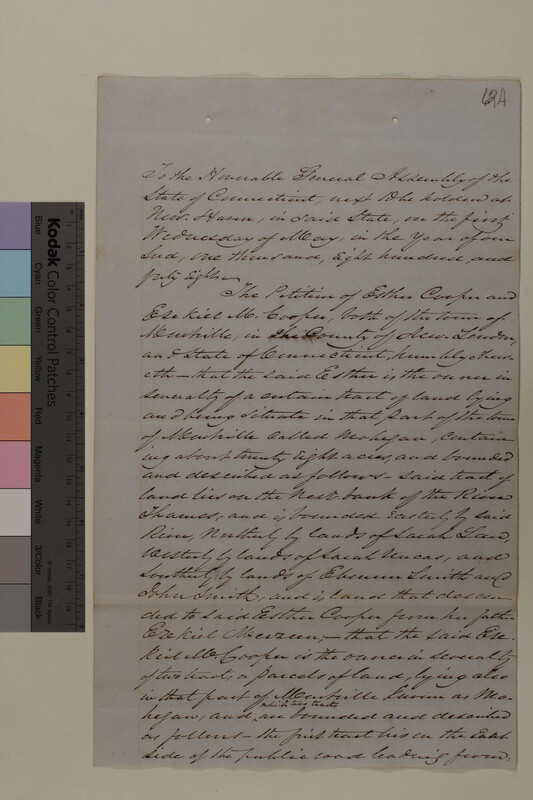 62A
To the Honorable General Assembly of the
State of Connecticut, next to be holden at
New Haven, in said State, on the first
Wednesday of May, in the Year of our
Lord, one thousand, eight hundred and
forty eight
The Petition of Esther Cooper and
Ezekiel M. Cooper, both of the town of
Montville, in the County of New London,
and State of Connecticut, humbly shew-
eth – that the said Esther is the owner in
severalty of a certain tract of land lying
and being situate in that part of the town
of Montville called Mohegan, contain
ing about twenty eight acres, and bounded
and described as follows – said tract of
land lies on the West bank of the River
Thames, and is bounded Easterly by said
River, Northerly by lands of Sarah
Westerly by lands of Sarah Uncas, and
Southerly by lands of Ebenezer Smith and
John Smith, and is land that descen
ded to said Esther Cooper from her father
Ezekiel – that the said Eze-
kiel M. Cooper is the owner in severalty
of two tracts or parcels of land, lying also
in that part of Montville known as Mo-
hegan, and which two tracts are bounded and described
as follows – the first tract lies on the East
side of the public road leading from
Kodak Color Control Patches
Blue
Cyan
Green
Yellow
Red
Magenta
White
3/Color
Black